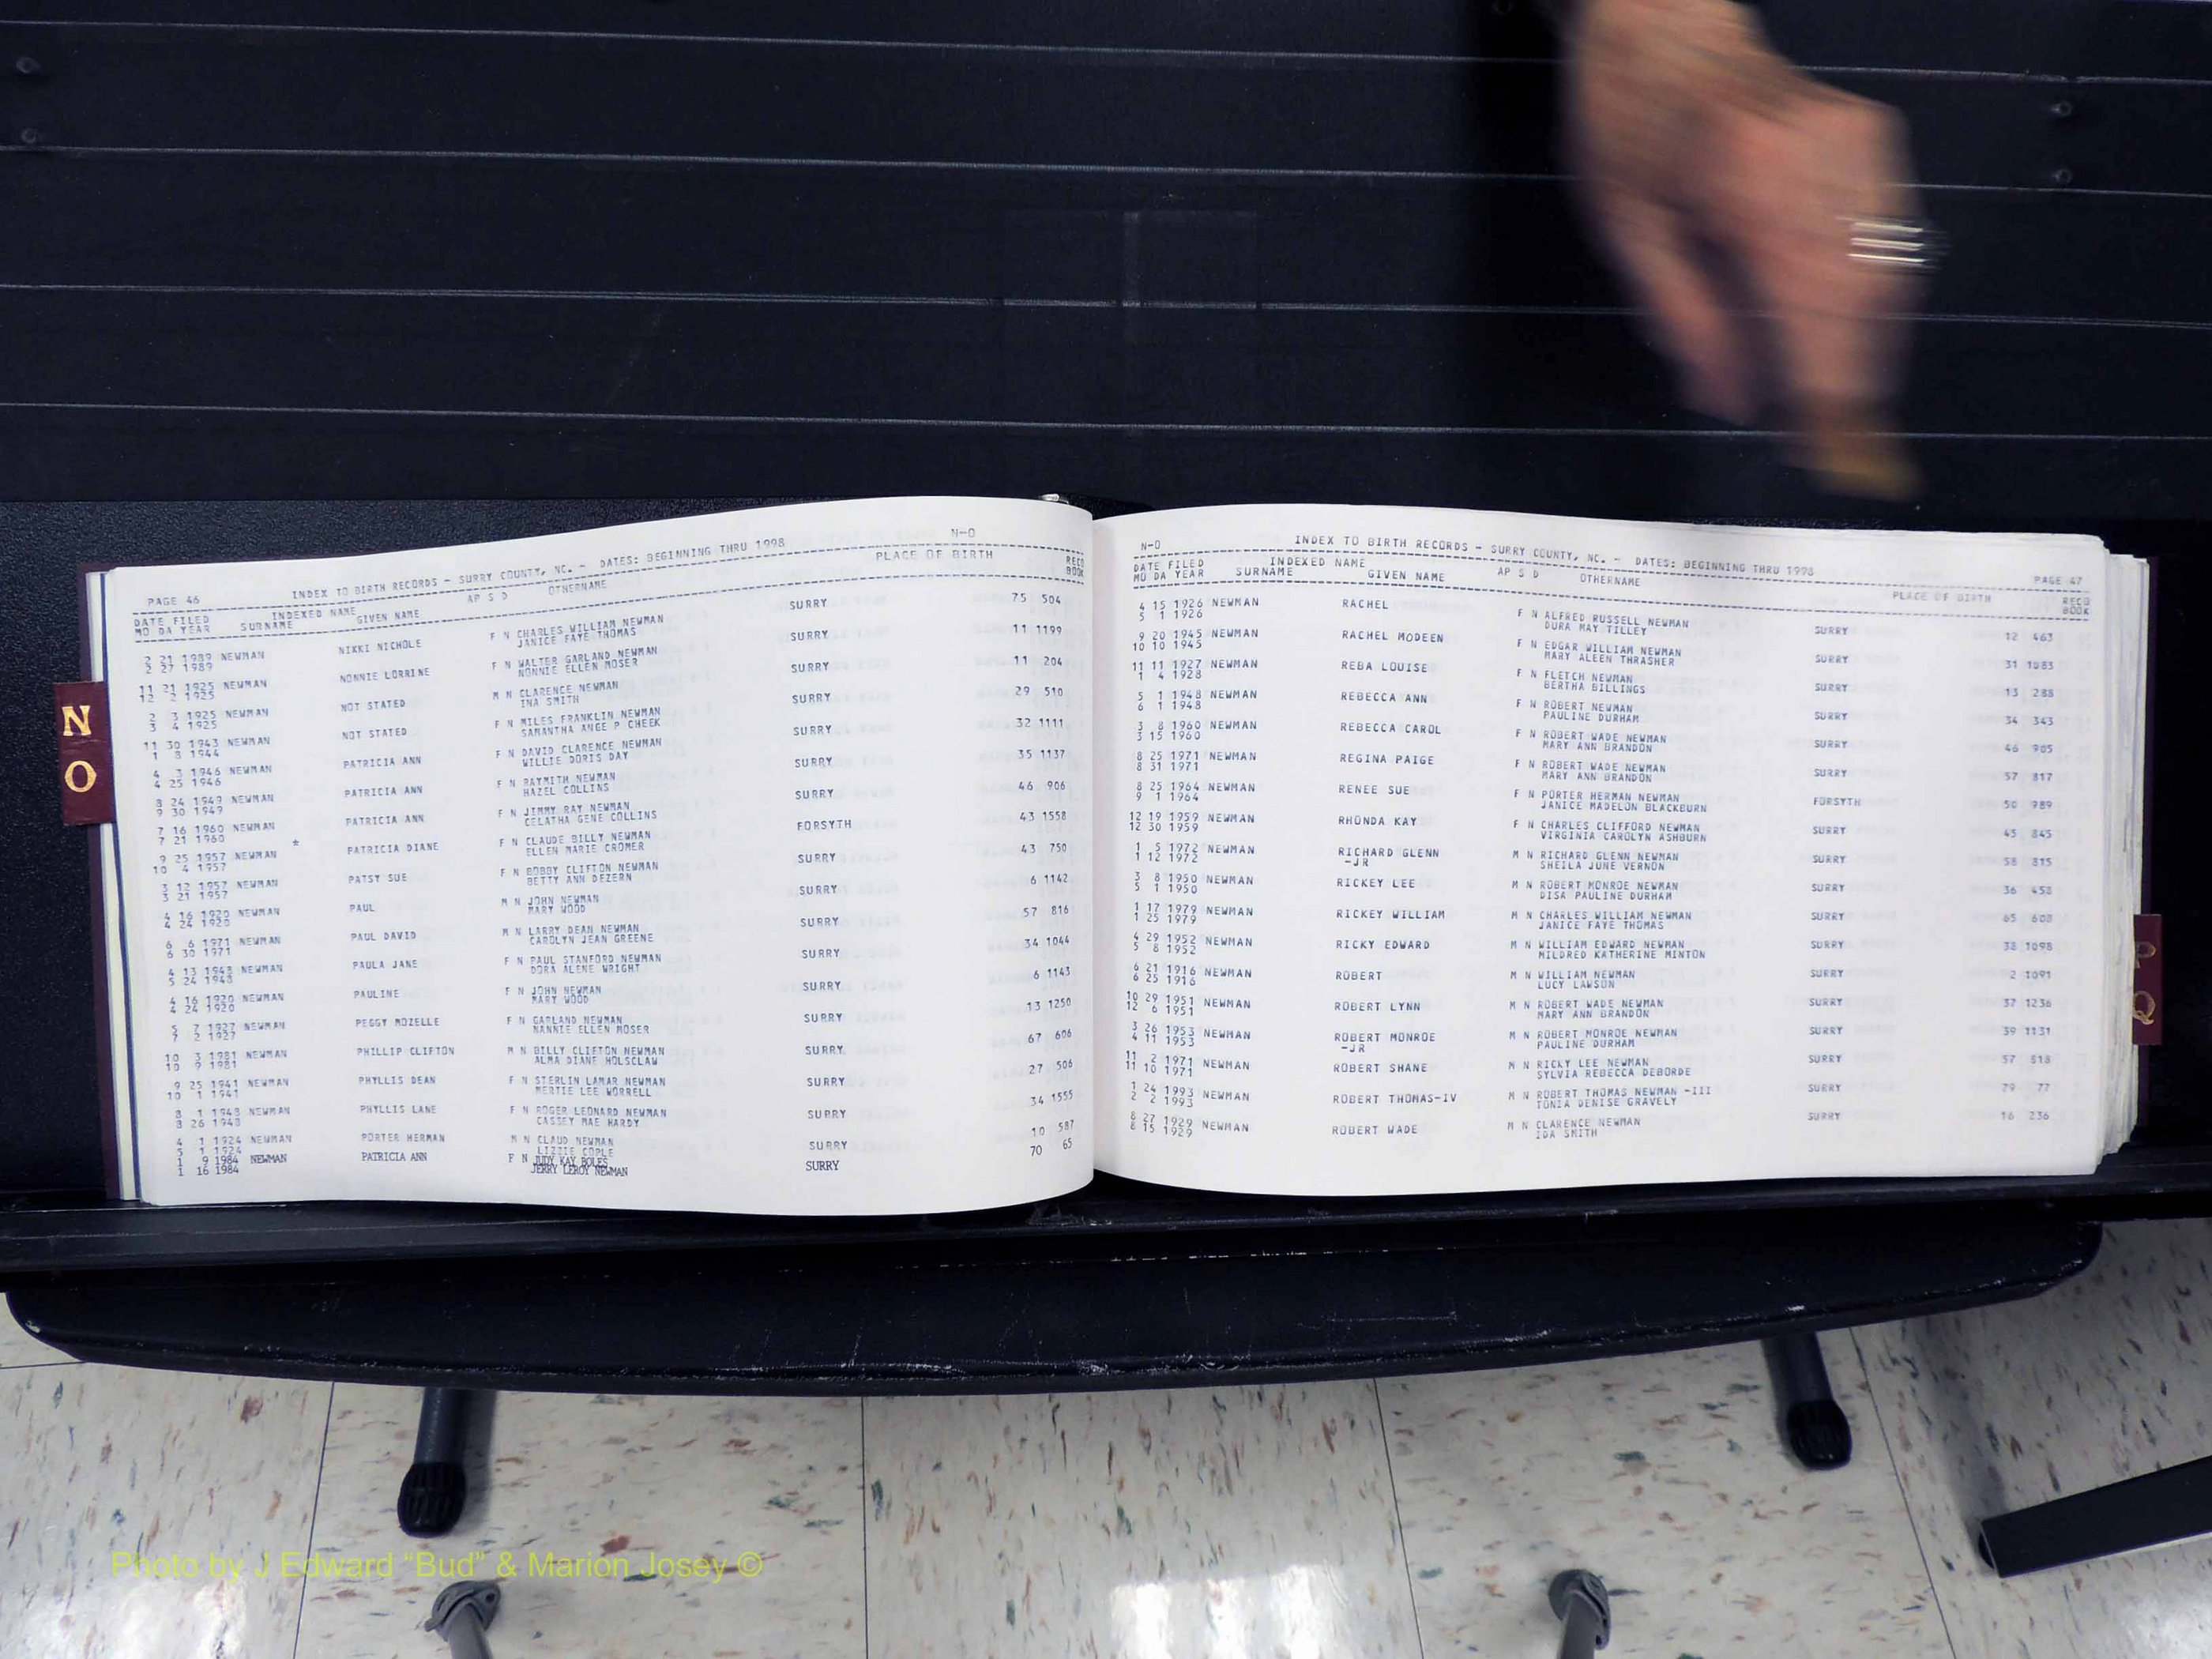 N-O
PAGE 46 INDEX TO BIRTH RECORDS - SURRY COUNTY, NC. - DATES: BEGINNING THRU 1998
DATE FILED INDEXED NAME AP S D OTHERNAME PLACE OF BIRTH RECO
MO DA YEAR SURNAME GIVEN NAME BOOK
2 21 1989 NEWMAN NIKKI NICHOLE F N CHARLES WILLIAM NEWMAN SURRY 75 504
2 27 1989 JANICE FAYE THOMAS
11 21 1925 NEWMAN NONNIE LORRINE F N WALTER GARLAND NEWMAN SURRY 11 1199
12 2 1925 NONNIE ELLEN MOSER
2 3 1925 NEWMAN NOT STATED M N CLARENCE NEWMAN SURRY 11 204
3 4 1925 INA SMITH
11 30 1943 NEWMAN NOT STATED F N MILES FRANKLIN NEWMAN SURRY 29 510
1 8 1944 SAMANTHA ANGE P CHEEK
4 3 1946 NEWMAN PATRICIA ANN F N DAVID CLARENCE NEWMAN SURRY 32 1111
4 25 1946 WILLIE DORIS DAY
8 24 1949 NEWMAN PATRICIA ANN F N RAYMITH NEWMAN SURRY 35 1137
9 30 1949 HAZEL COLLINS
7 16 1960 NEWMAN PATRICIA ANN F N JIMMY RAY NEWMAN SURRY 46 906
7 21 1960 CELATHA GENE COLLINS
9 25 1957 NEWMAN * PATRICIA DIANE F N CLAUDE BILLY NEWMAN FORSYTH 43 1558
10 4 1957 ELLEN MARIE CROMER
3 12 1957 NEWMAN PATSY SUE F N BOBBY CLIFTON NEWMAN SURRY 43 750
3 21 1957 BETTY ANN DEZERN
4 16 1920 NEWMAN PAUL M N JOHN NEWMAN SURRY 6 1142
4 24 1920 MARY WOOD
6 6 1971 NEWMAN PAUL DAVID M N LARRY DEAN NEWMAN SURRY 57 816
6 30 1971 CAROLYN JEAN GREENE
4 13 1948 NEWMAN PAULA JANE F N PAUL STANFORD NEWMAN SURRY 34 1044
5 24 1948 DORA ALENE WRIGHT
4 16 1920 NEWMAN PAULINE F N JOHN NEWMAN SURRY 6 1143
4 24 1920 MARY WOOD
5 7 1927 NEWMAN PEGGY MOZELLE F N GARLAND NEWMAN SURRY 13 1250
7 2 1927 NANNIE ELLEN MOSER
10 3 1981 NEWMAN PHILLIP CLIFTON M N BILLY CLIFTON NEWMAN SURRY 67 606
10 9 1981 ALMA DIANE HOLSCLAW
9 25 1941 NEWMAN PHYLLIS DEAN F N STERLIN LAMAR NEWMAN SURRY 27 506
10 1 1941 MERTIE LEE WORRELL
8 1 1948 NEWMAN PHYLLIS LANE F N ROGER LEONARD NEWMAN SURRY 34 1555
8 26 1948 CASSEY MAE HARDY
4 1 1924 NEWMAN PORTER HERMAN M N CLAUD NEWMAN SURRY 10 587
5 1 1924 LIZZIE COPLE
1 9 1984 NEWMAN PATRICIA ANN F N JUDY KAY BOLES SURRY 70 65
1 16 1984 JERRY LEROY NEWMAN
N-O INDEX TO BIRTH RECORDS - SURRY COUNTY, NC. - DATES: BEGINNING THRU 1998 PAGE 47
DATE FILED INDEXED NAME AP S D OTHERNAME PLACE OF BIRTH RECO
MO DA YEAR SURNAME GIVEN NAME BOOK
4 15 1926 NEWMAN RACHEL F N ALFRED RUSSELL NEWMAN SURRY 12 463
5 1 1926 DURA MAY TILLEY
9 20 1945 NEWMAN RACHEL MODEEN F N EDGAR WILLIAM NEWMAN SURRY 31 1083
10 10 1945 MARY ALEEN THRASHER
11 11 1927 NEWMAN REBA LOUISE F N FLETCH NEWMAN SURRY 13 288
1 4 1928 BERTHA BILLINGS
5 1 1948 NEWMAN REBECCA ANN F N ROBERT NEWMAN SURRY 34 343
6 1 1948 PAULINE DURHAM
3 8 1960 NEWMAN REBECCA CAROL F N ROBERT WADE NEWMAN SURRY 46 905
3 15 1960 MARY ANN BRANDON
8 25 1971 NEWMAN REGINA PAIGE F N ROBERT WADE NEWMAN SURRY 57 817
8 31 1971 MARY ANN BRANDON
8 25 1964 NEWMAN RENEE SUE F N PORTER HERMAN NEWMAN FORSYTH 50 989
9 1 1964 JANICE MADELON BLACKBURN
12 19 1959 NEWMAN RHONDA KAY F N CHARLES CLIFFORD NEWMAN SURRY 45 845
12 30 1959 VIRGINIA CAROLYN ASHBURN
1 5 1972 NEWMAN RICHARD GLENN M N RICHARD GLENN NEWMAN SURRY 58 815
1 12 1972 -JR SHEILA JUNE VERNON
3 8 1950 NEWMAN RICKEY LEE M N ROBERT MONROE NEWMAN SURRY 36 458
5 1 1950 DISA PAULINE DURHAM
1 17 1979 NEWMAN RICKEY WILLIAM M N CHARLES WILLIAM NEWMAN SURRY 65 608
1 25 1979 JANICE FAYE THOMAS
4 29 1952 NEWMAN RICKY EDWARD M N WILLIAM EDWARD NEWMAN SURRY 38 1098
5 8 1952 MILDRED KATHERINE MINTON
6 21 1916 NEWMAN ROBERT M N WILLIAM NEWMAN SURRY 2 1091
6 25 1916 LUCY LAWSON
10 29 1951 NEWMAN ROBERT LYNN M N ROBERT WADE NEWMAN SURRY 37 1236
12 6 1951 MARY ANN BRANDON
3 26 1953 NEWMAN ROBERT MONROE M N ROBERT MONROE NEWMAN SURRY 39 1131
4 11 1953 -JR PAULINE DURHAM
11 2 1971 NEWMAN ROBERT SHANE M N RICKY LEE NEWMAN SURRY 57 818
11 10 1971 SYLVIA REBECCA DEBORDE
1 24 1993 NEWMAN ROBERT THOMAS-IV M N ROBERT THOMAS NEWMAN -III SURRY 79 77
2 2 1993 TONIA DENISE GRAVELY
8 27 1929 NEWMAN ROBERT WADE M N CLARENCE NEWMAN SURRY 16 236
8 15 1929 IDA SMITH
N
O
P
Q
Photo by J Edward “Bud” & Marion Josey ©